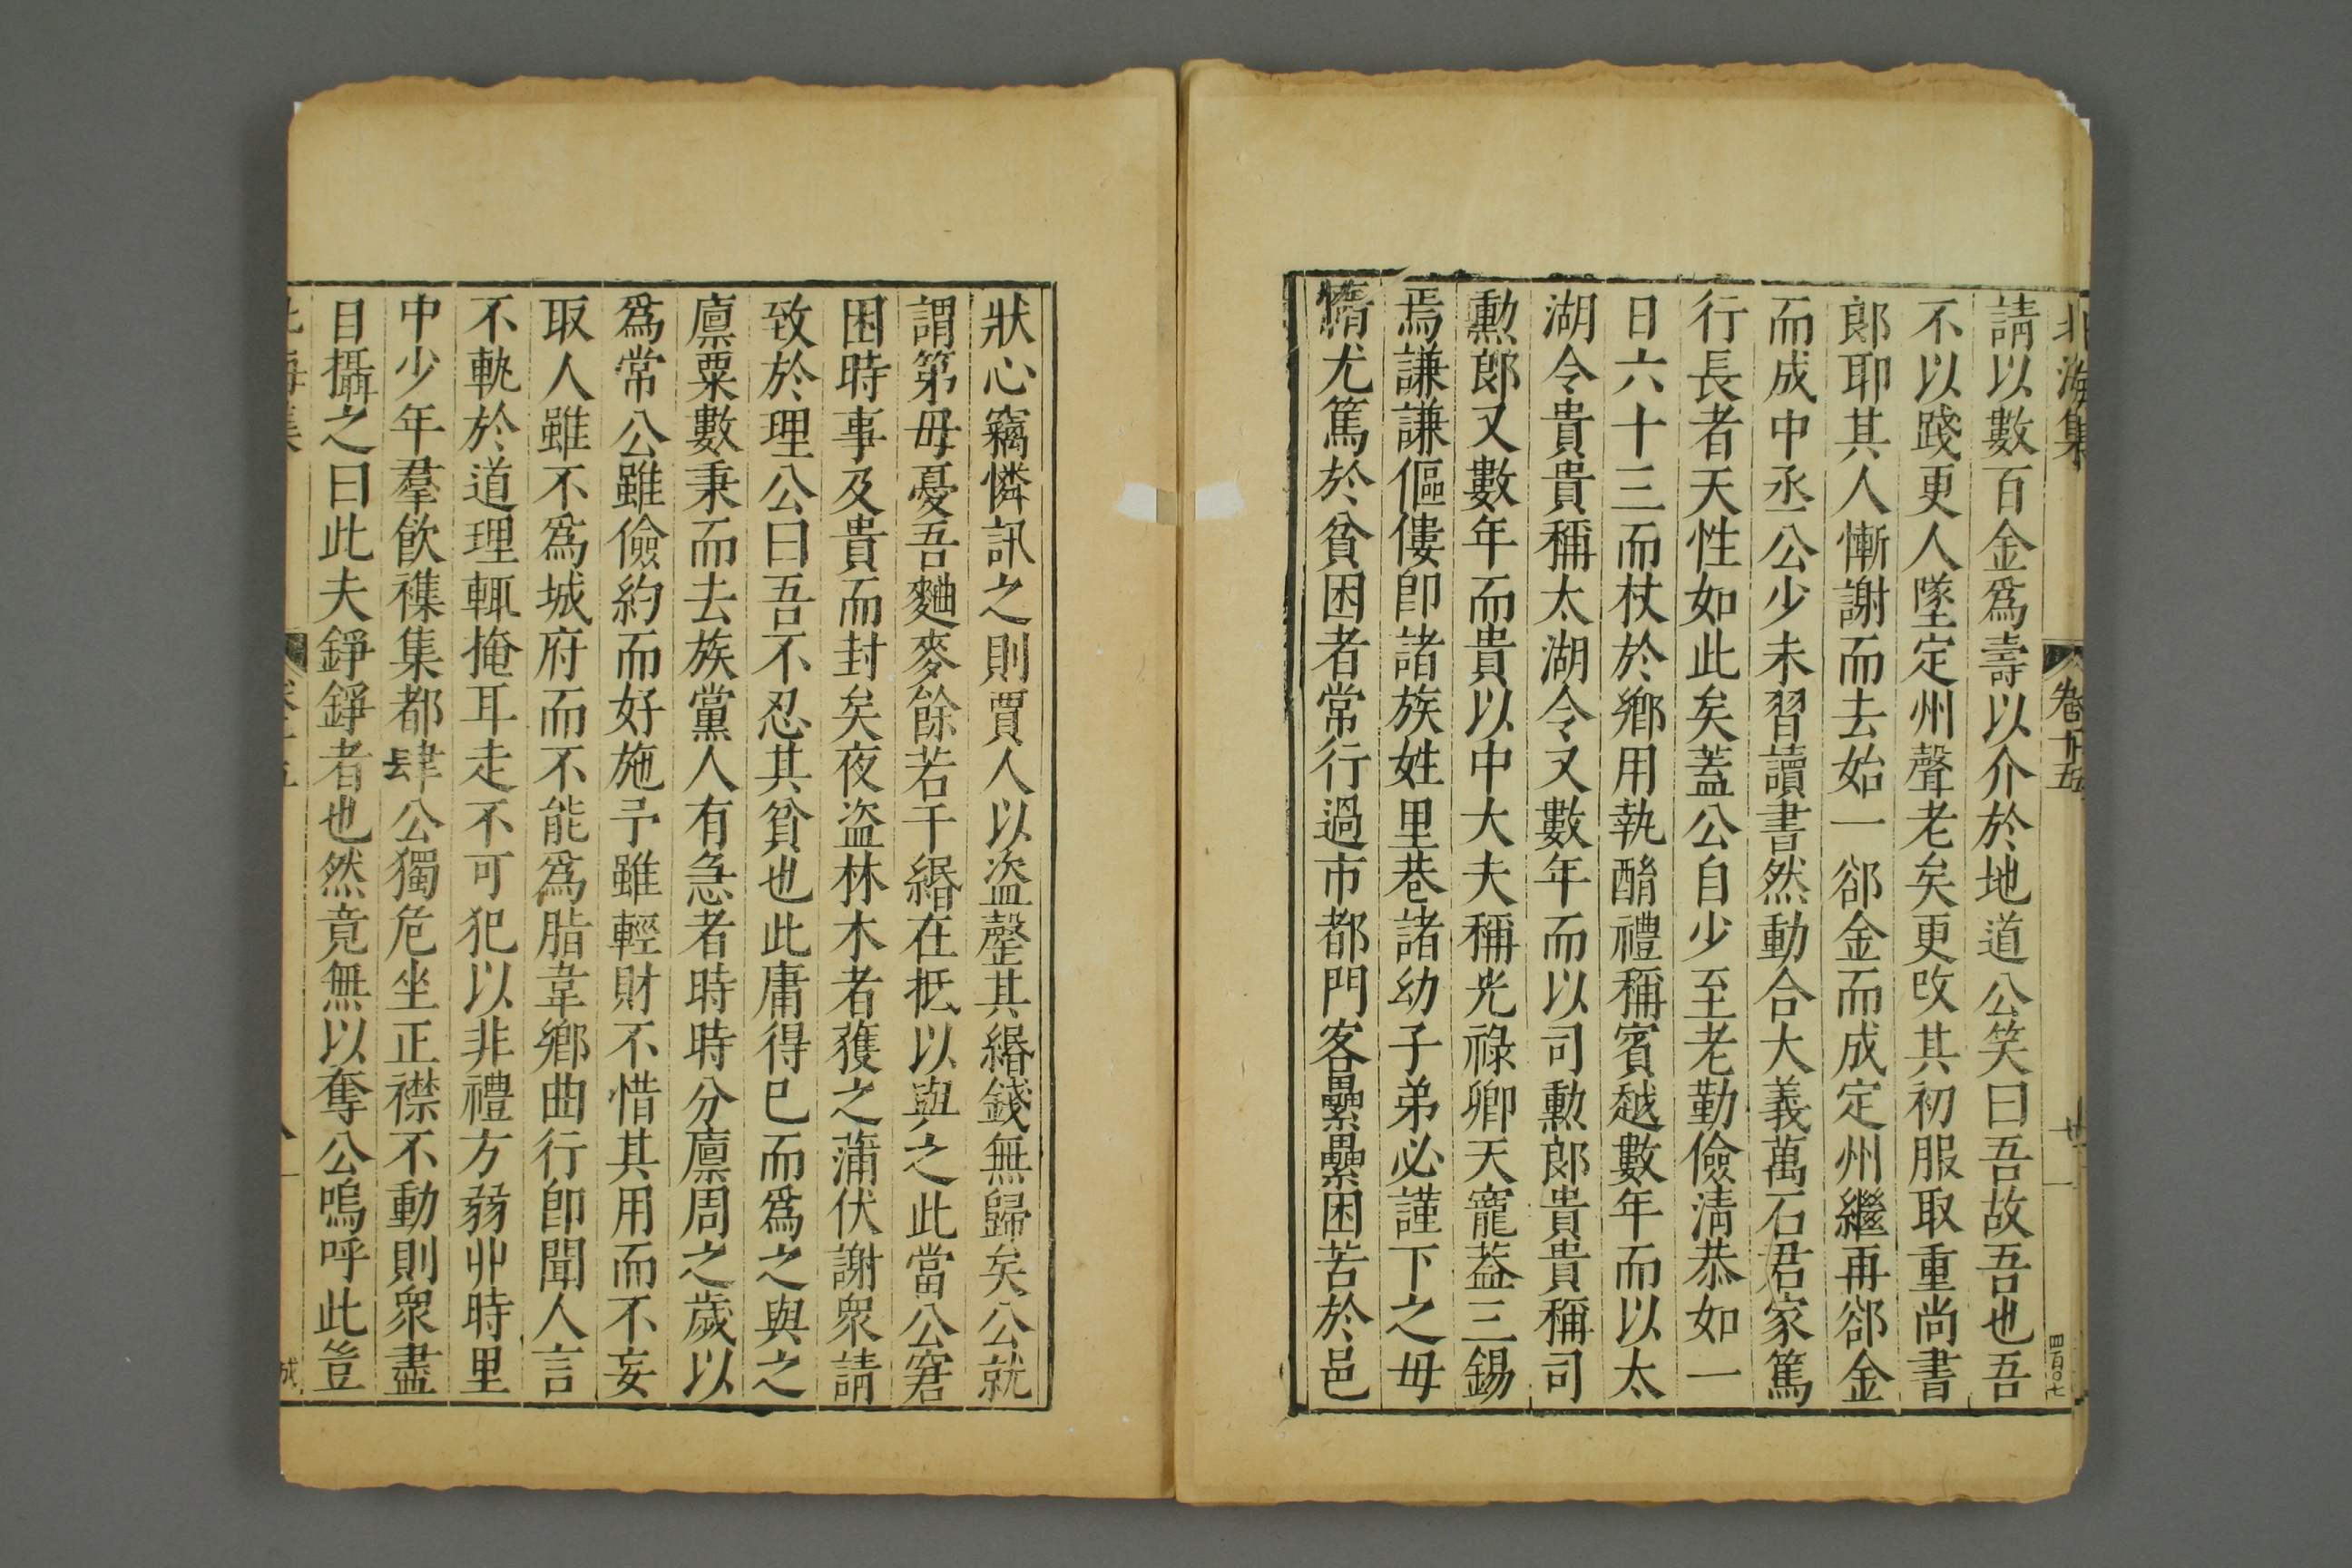 北海集
卷十五
四百〇七
請以數百金爲壽以介於地道公笑曰吾故吾也吾
不以踐更人墜定州聲老矣更改其初服取重尚書
郎耶其人慚謝而去始一郤金而成定州繼再郤金
而成中丞公少未習讀書然動合大義萬石君家篤
行長者天性如此矣蓋公自少至老勤儉淸恭如一
日六十三而杖於鄉用執醑禮稱賓越數年而以太
湖令貴貴稱太湖令又數年而以司勳郎貴貴稱司
勳郎又數年而貴以中大夫稱光祿卿天寵葢三錫
焉謙謙傴僂卽諸族姓里巷諸幼子弟必謹下之毋
惰尤篤於貧困者常行過市都門客纍纍困苦於邑
狀心竊憐訊之則賈人以盗罄其緡錢無歸矣公就
謂第毋憂吾麯麥餘若干緡在抵以與之此當公窘
困時事及貴而封矣夜盗林木者獲之蒲伏謝衆請
致於理公曰吾不忍其貧也此庸得已而爲之與之
廪粟數秉而去族黨人有急者時時分廪周之歲以
爲常公雖儉約而好施予雖輕財不惜其用而不妄
取人雖不爲城府而不能爲脂韋鄉曲行卽聞人言
不軌於道理輒掩耳走不可犯以非禮方弱丱時里
中少年羣飲襍集都肆公獨危坐正襟不動則衆盡
目攝之曰此夫錚錚者也然竟無以奪公嗚呼此豈